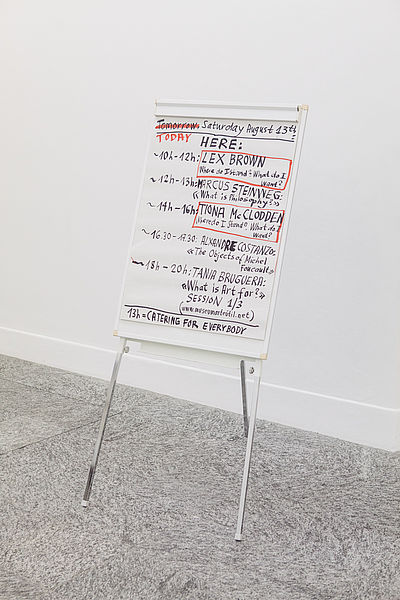 Tomorrow Saturday August 13th
TODAY HERE:
~10h-12h: LEX BROWN
Where do I stand? What do I
Want?
~12h-13h: MARCUS STEINWEG:
«What is Philosophy?»
~14h-16h: TIONA McCLODDEN
Where do I Stand? What do I
Want?
~16.30-17.30: ALEXANDRE COSTANZO:
«The Objects of Michel
Foucault»
~18h-20h: TANIA BRUGUERA:
«What is Art for?»
SESSION 1/3
(www.museumarteutil.net)
13h = CATERING FOR EVERYBODY